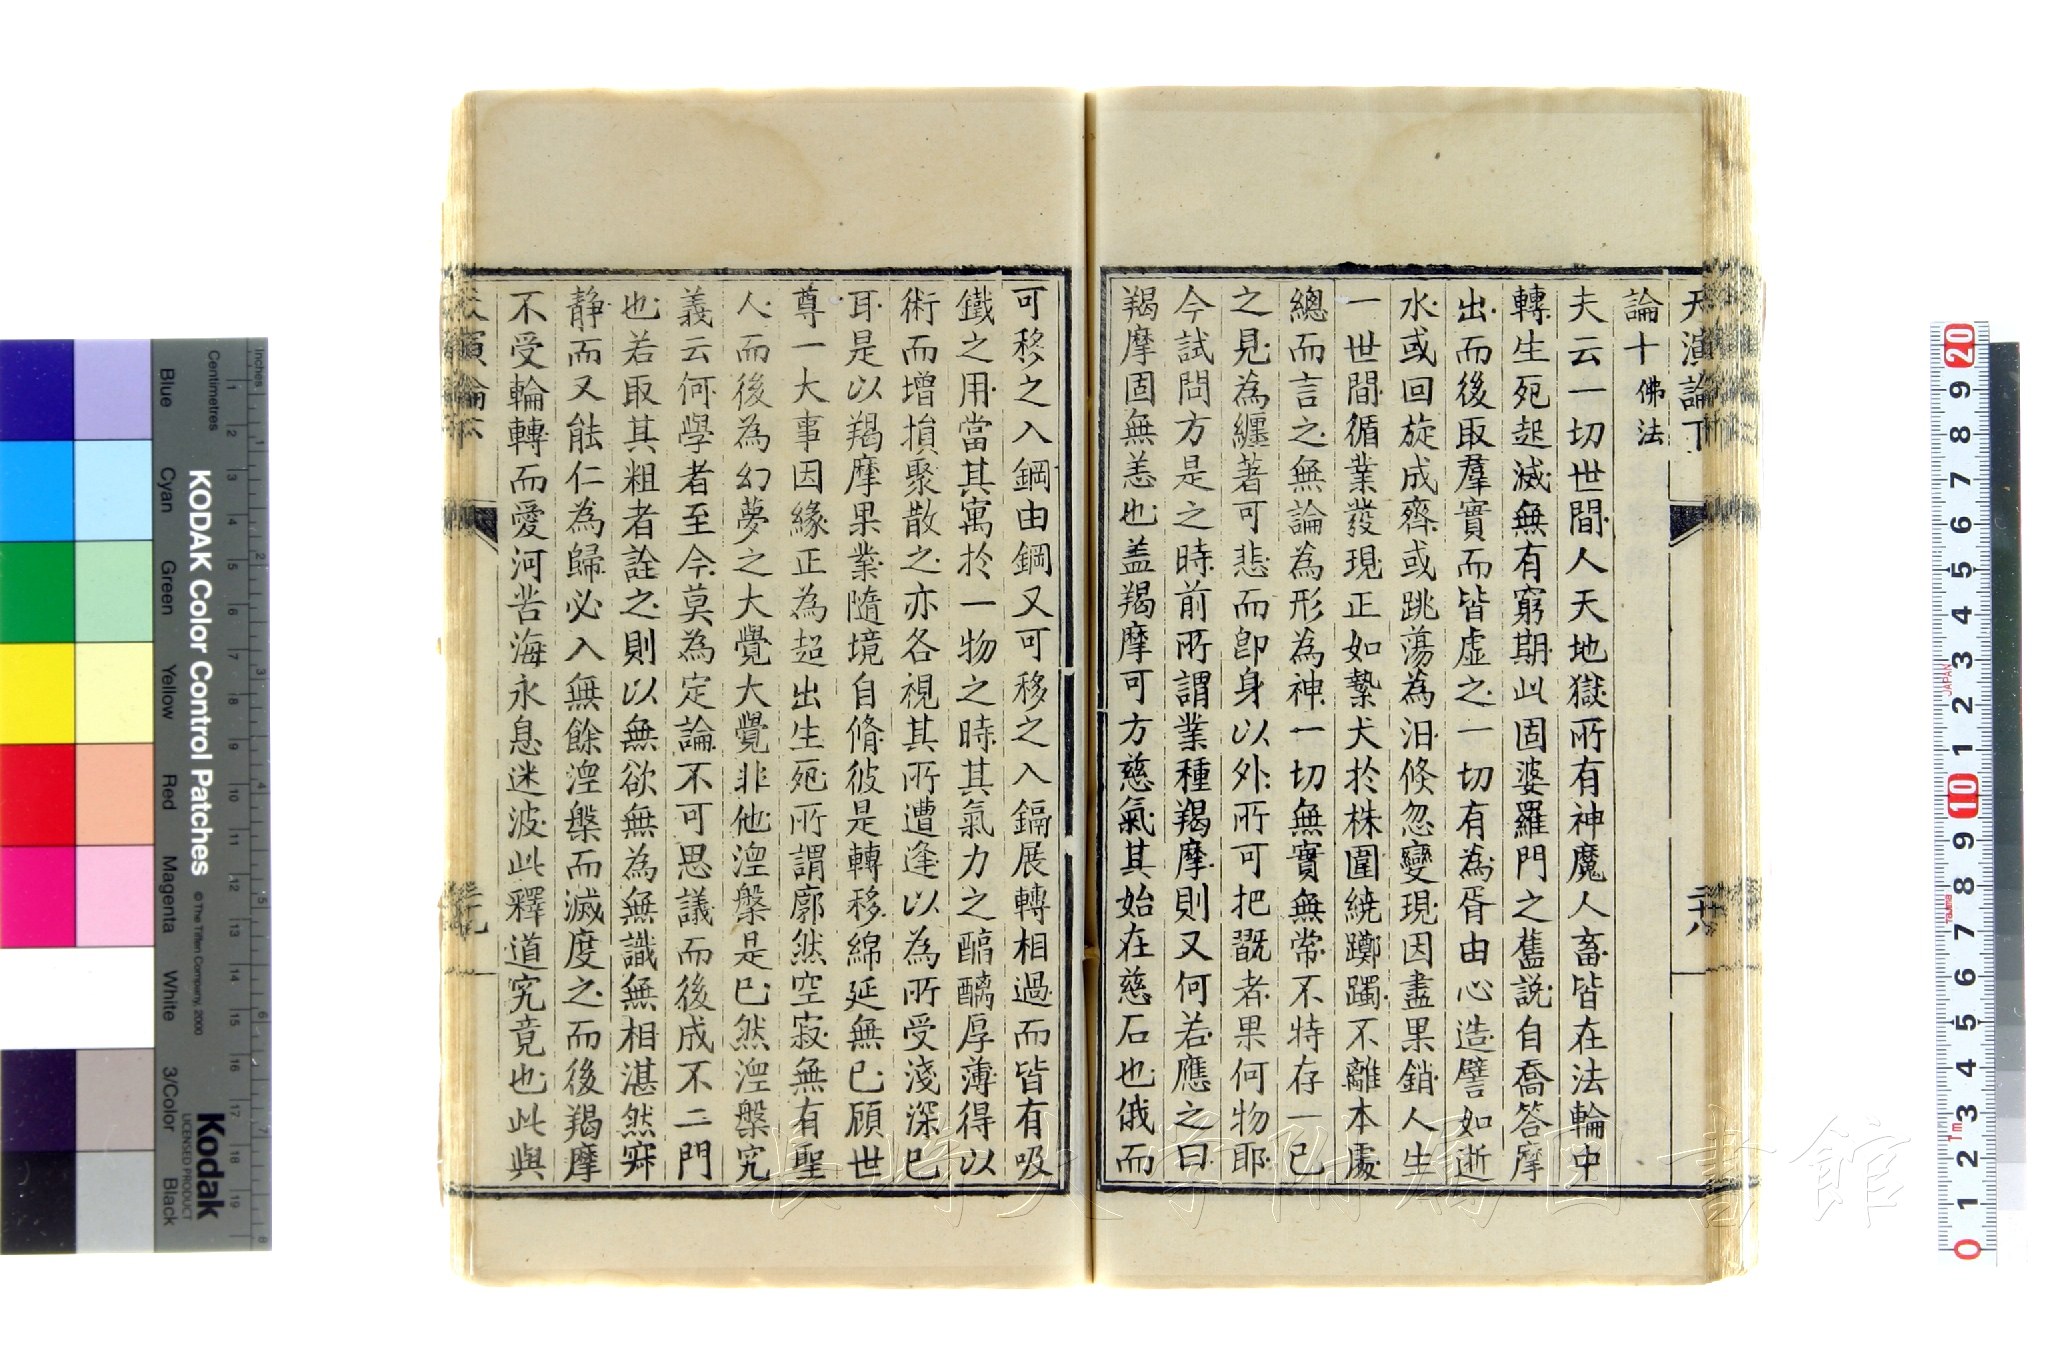 天演論下
論十 佛法
夫云一切世間人天地獄所有神魔人畜皆在法輪中
轉生死起滅無有窮期此固婆羅門之舊說自喬答摩
出而後取羣實而皆虛之一切有為胥由心造譬如逝
水或回旋成齊或跳蕩為汨倏忽變現因盡果銷人生
一世間循業發現正如縶犬於株圍繞躑躅不離本處
總而言之無論為形為神一切無實無常不特存一己
之見為纏著可悲而即身以外所可把翫者果何物耶
今試問方是之時前所謂業種羯摩則又何若應之曰
羯摩固無恙也盖羯摩可方慈氣其始在慈石也俄而
二十八
可移之入鋼由鋼又可移之入鎘展轉相過而皆有吸
鐵之用當其寓於一物之時其氣力之醅醨厚薄得以
術而增損聚散之亦各視其所遭逢以為所受淺深已
耳是以羯摩果業隨境自脩彼是轉移綿延無已顧世
尊一大事因緣正為超出生死所謂廓然空寂無有聖
人而後為幻夢之大覺大覺非他涅槃是已然涅槃究
義云何學者至今莫為定論不可思議而後成不二門
也若取其粗者詮之則以無欲無為無識無相湛然寂
静而又能仁為歸必入無餘涅槃而滅度之而後羯摩
不受輪轉而愛河苦海永息迷波此釋道究竟也此與
天演論下
二十九
長崎大学附属図書館
KODAK Color Control Patches
© The Tiffen Company, 2000
Kodak
LICENSED PRODUCT
Inches
Centimetres
Blue
Cyan
Green
Yellow
Red
Magenta
White
3/Color
Black
JAPAN